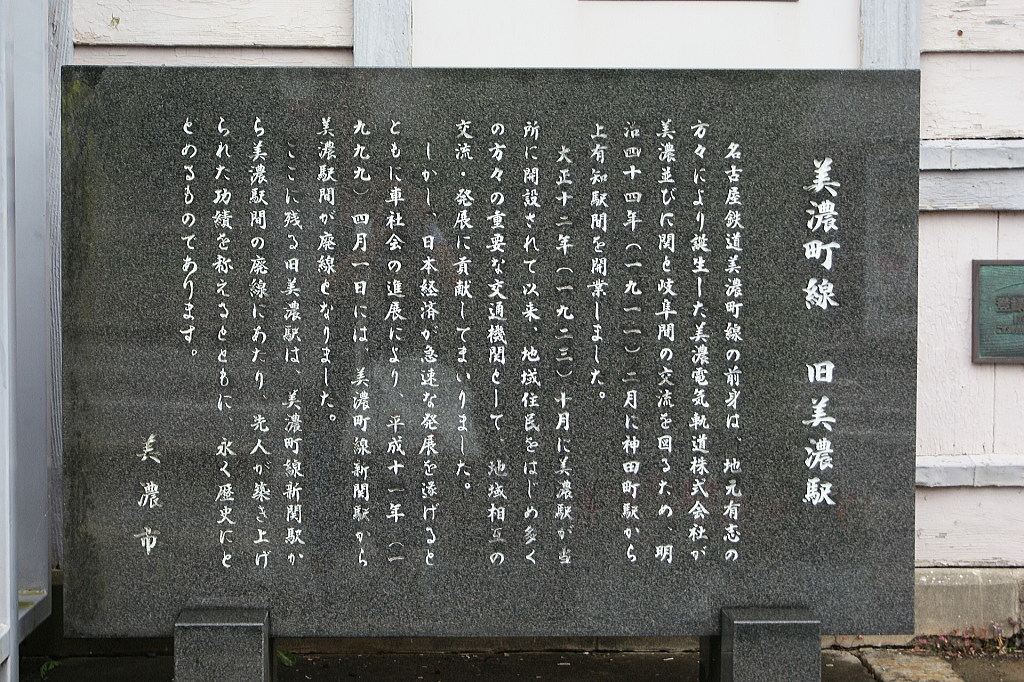 美濃町線　旧美濃駅
名古屋鉄道美濃町線の前身は、地元有志の
方々により誕生した美濃電気軌道株式会社が
美濃並びに関と岐阜間の交流を図るため、明
治四十四年(一九一一)二月に神田町駅から
上有知駅間を開業しました。
大正十二年(一九二三)十月に美濃駅が当
所に開設されて以来、地域住民をはじめ多く
の方々の重要な交通機関として、地域相互の
交流・発展に貢献してまいりました。
しかし、日本経済が急速な発展を遂げると
ともに車社会の進展により、平成十一年(一
九九九)四月一日には、美濃町線新関駅から
美濃駅間が廃線となりました。
ここに残る旧美濃駅は、美濃町線新関駅か
ら美濃駅間の廃線にあたり、先人が築き上げ
られた功績を称えるとともに　永く歴史にと
どめるものであります。
美濃市